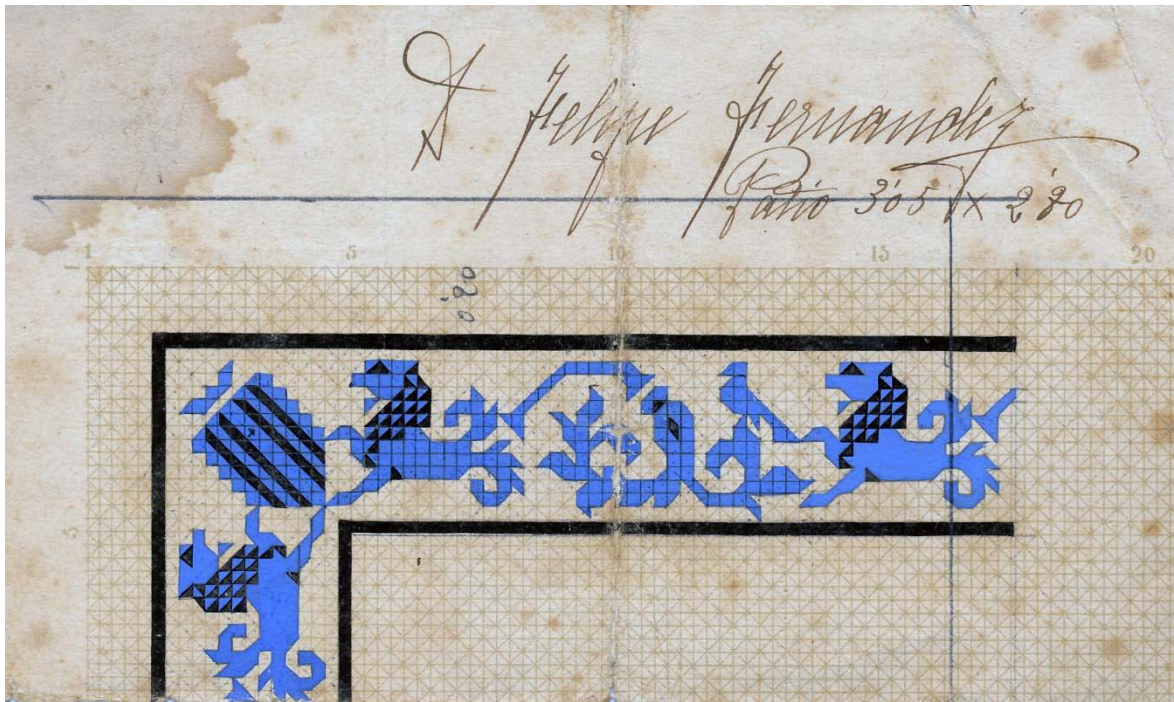 D Felipe Fernandez
Patio 3'05 x 2'20
1 5 10 15 20
0'20
5